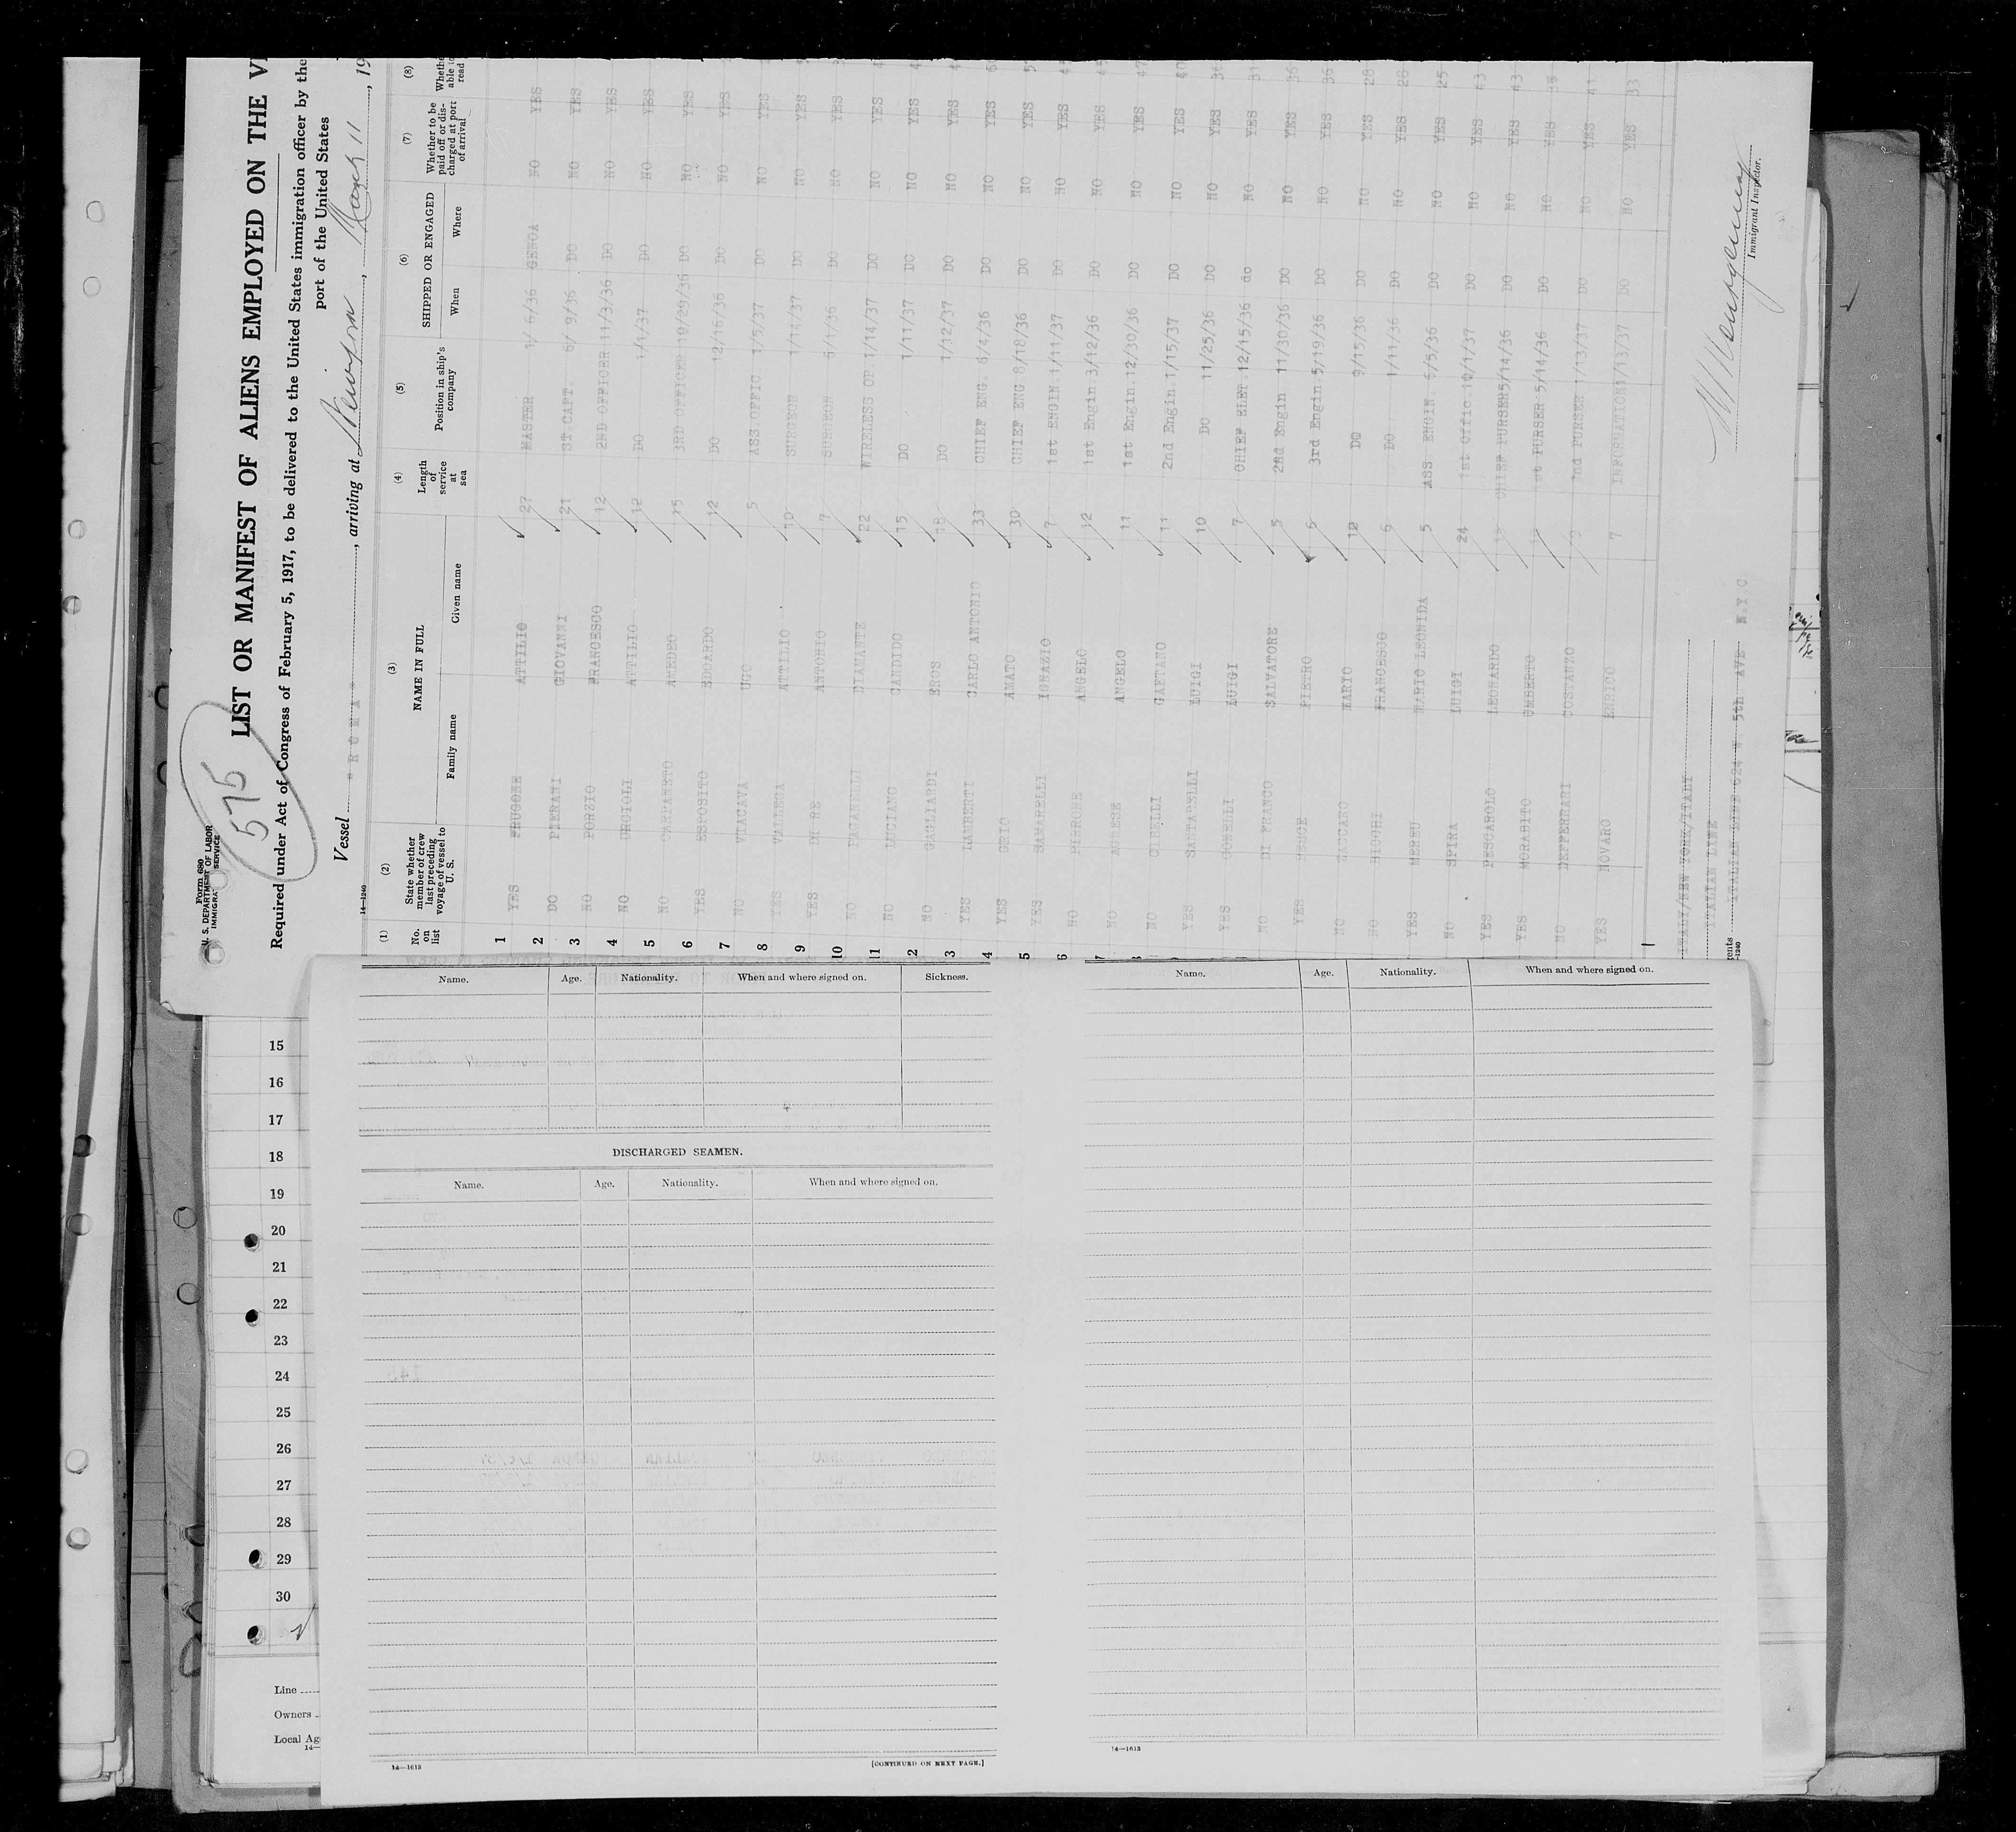 Form 680
U. S. DEPARTMENT OF LABOR
IMMIGRA SERVICE
575
LIST OR MANIFEST OF ALIENS EMPLOYED ON THE
Required under Act of Congress of February 5, 1917, to be delivered to the United States immigration officer by the
port of the United States
Vessel "ROMA", arriving at, March 11, 19
14—1240
(1) (2) (3) (4) (5) (6) (7) (8)
No. on list
State whether member of crew last preceding voyage of vessel to U. S.
NAME IN FULL
Family name Given name
Length of service at sea
Position in ship's company
SHIPPED OR ENGAGED
When Where
Whether to be paid off or discharged at port of arrival
Whethe able to read
1 YES FRUGONE ATTILIO 27 MASTER 1/6/36 GENOA NO YES
2 DO PIERANI GIOVANNI 21 ST CAPT 6/9/36 DO NO YES
3 NO PORZIO FRANCESCO 12 2ND OFFICER 11/3/36 DO NO YES
4 NO URGIOLI ATTILIO 12 DO 1/1/37 DO NO YES
5 NO AMEDEO 25 3RD OFFICER DO NO YES
6 YES ESPOSITO EDOARDO 12 DO 12/16/36 DO NO YES
7 NO VIACAVA UGO 5 ASS OFFIC 1/5/37 DO NO YES
8 YES VALLEGA ATTILIO 10 SURGEON 1/14/37 DO NO YES
9 YES DI RE ANTONIO 7 SURGEON DO NO YES
10 NO DIAMANTE 22 WIRELESS OP. 1/14/37 DO NO YES
11 NO LUCIANO CANDIDO 15 DO 1/11/37 DO NO YES
2 NO GAGLIARDI EROS 18 DO 1/12/37 DO NO YES
3 YES CARLO ANTONIO 33 CHIEF ENG. 6/4/36 DO NO YES
4 YES GRIO AMATO 30 CHIEF ENG 8/18/36 DO NO YES
5 YES SAMARELLI IGNAZIO 7 1st ENGIN. 1/11/37 DO NO YES
6 NO PIRRONE ANGELO 12 1st Engin 3/12/36 DO NO YES
7 NO ANGELO 11 1st Engin. 12/30/36 DO NO YES
NO CINELLI GAETANO 11 2nd Engin. 1/15/37 DO NO YES
YES SANTARELLI LUIGI 10 DO 11/25/36 DO NO YES 36
YES LUIGI 7 CHIEF ELET. 12/15/36 do NO YES 31
NO DI FRANCO SALVATORE 5 2nd Engin 11/30/36 DO NO YES 36
YES PESCE PIETRO 6 3rd Engin. 5/19/36 DO NO YES 36
NO ZACCARO MARIO 12 DO 9/15/36 DO NO YES 28
NO FRANCESCO 6 DO 1/11/36 DO NO YES 28
YES MEREU MARIO LEONIDA 5 ASS. ENGIN. DO NO YES 25
NO SPIRA LUIGI 24 1st Offic. DO NO YES 43
YES PESCAROLO LEONARDO CHIEF PURSER 5/14/36 DO NO YES 43
YES MORABITO UMBERTO 1st PURSER 5/14/36 DO NO YES
NO DEFFERRARI COSTANZO 9 2nd PURSER 1/13/37 DO NO YES 41
YES NOVARO ENRICO 7 INFORMATION 1/13/37 DO NO YES 33
ITALY/NEW YORK/ITALY
ITALIAN LINE
gents ITALIAN LINE 624 5th AVE N.Y C
Immigrant Inspector.
Name. Age. Nationality. When and where signed on. Sickness.
DISCHARGED SEAMEN.
Name. Age. Nationality. When and where signed on.
14—1613
[CONTINUED ON NEXT PAGE.]
Name. Age. Nationality. When and where signed on.
14—1613
15
16
17
18
19
20
21
22
23
24
25
26
27
28
29
30
Line
Owners
Local Ag
14—